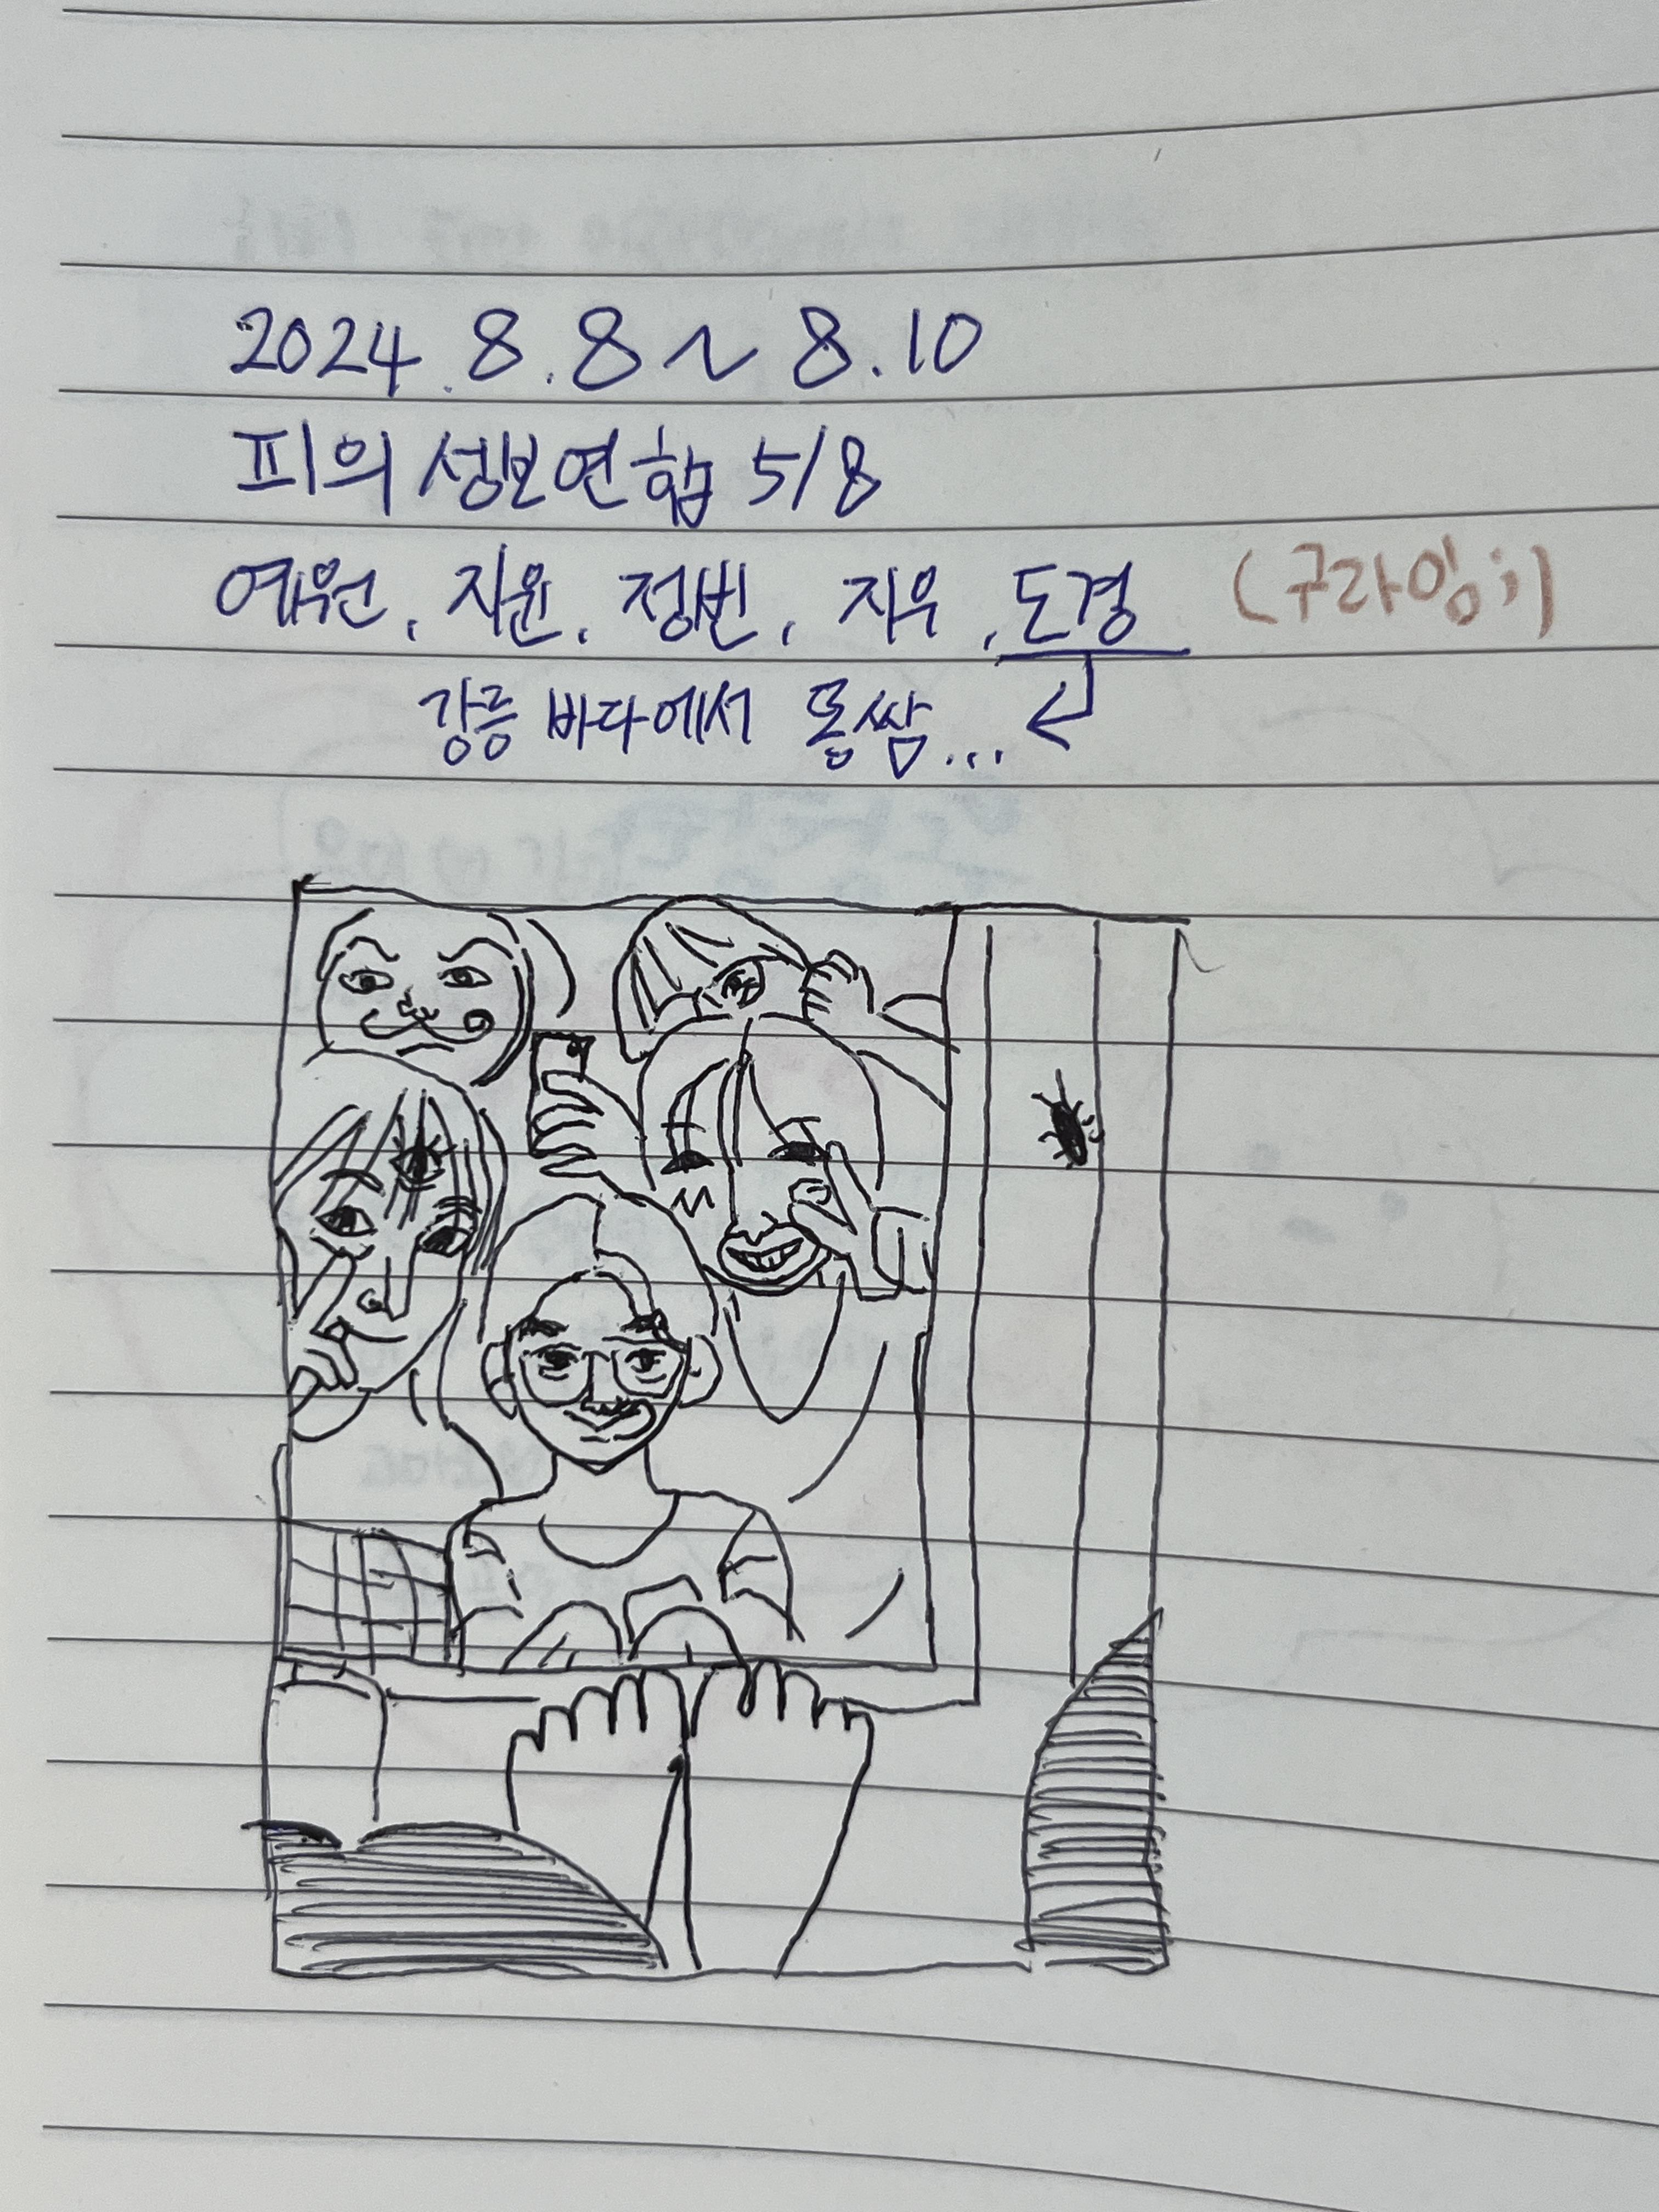 2024.8.8~8.10
피의 성보연합 5/8
예원, 지윤, 정빈, 지우, 도경 (구라임;;)
강릉 바다에서 똥쌈...